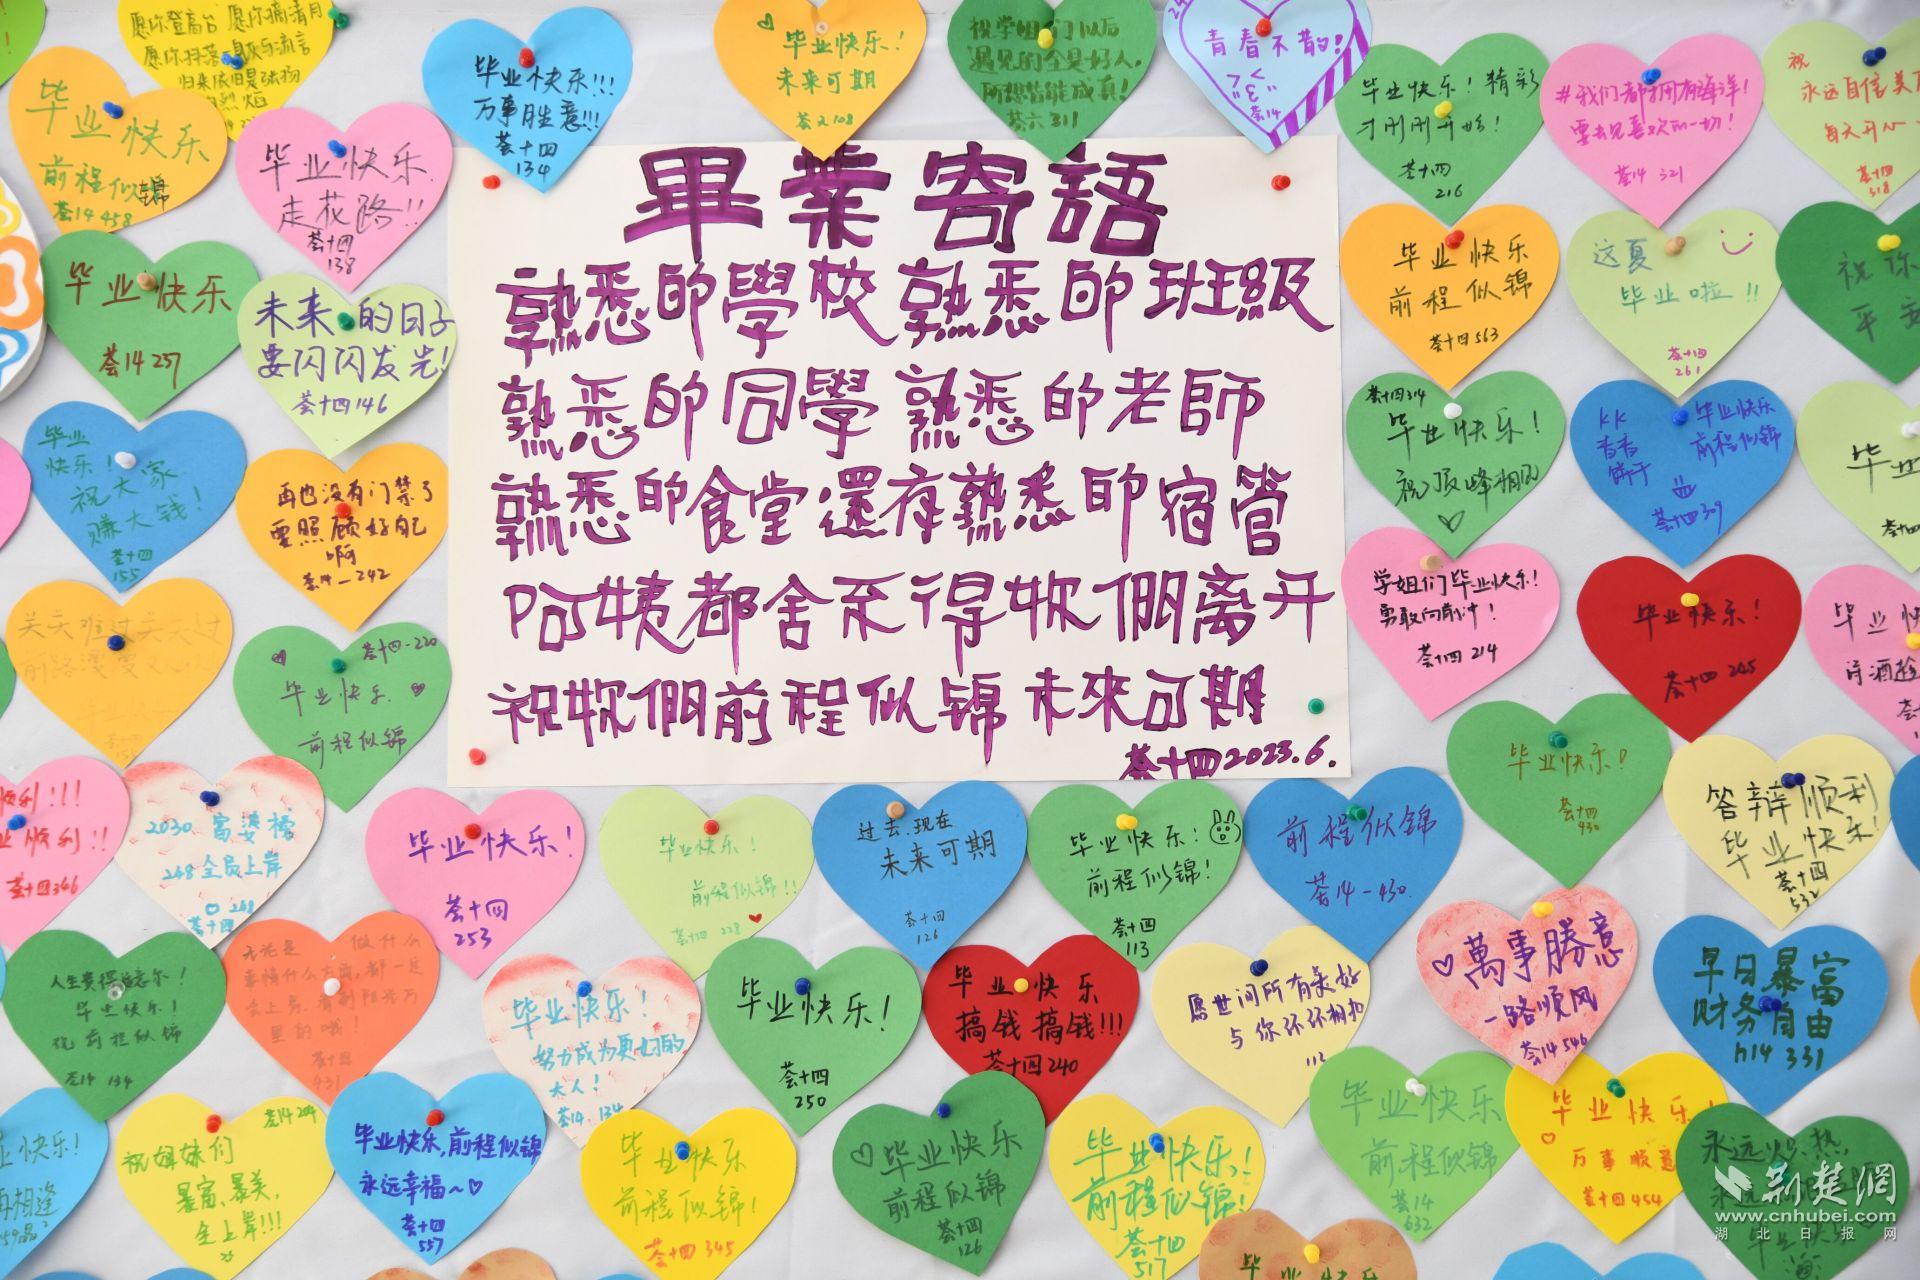 愿你登高台 愿你摘清月
归来依旧是
毕业快乐
前程似锦
荟14 458
毕业快乐!!!
万事胜意!!!
荟十四
134
毕业快乐!
未来可期
荟又108
祝学姐们以后
遇见的全是好人,
所想皆能成真!
荟六 311
青春不散的!
荟14
毕业快乐! 精彩
才刚刚开始!
荟十四
216
#我们都拥有海洋!
要去见喜欢的一切!
荟14 321
祝
永远自信美
每天开心
荟十四
318
毕业快乐
走花路!!
荟十四
138
畢業寄語
熟悉的學校熟悉的班級
熟悉的同學 熟悉的老師
熟悉的食堂還有熟悉的宿管
阿姨都舍不得妳們离开
祝妳們前程似錦 未來可期
荟十四2023.6.
毕业快乐
荟14 257
未来的日子
要闪闪发光!
荟十四146
毕业快乐
前程似锦
荟十四563
这夏
毕业啦!!
荟十四
261
祝你
平安
毕业
快乐! 大家
祝大家
赚大钱!
荟十四
155
再也没有门禁了
要照顾好自己
啊
荟14-242
荟十四314
毕业快乐!
祝顶峰相见
KK
香香
饼干
毕业快乐
前程似锦
荟十四309
学姐们毕业快乐!
勇敢向前冲!
荟十四 214
毕业快乐!
荟十四 245
关关难过关关过
前路漫漫
荟十四-220
毕业快乐
前程似锦
毕业快乐!
荟十四
430
答辩顺利
毕业快乐!
荟十四
532
顺利!!!
业顺利!!
荟十四346
2030 富婆楼
248全员上岸
248
荟十四
毕业快乐!
荟十四
253
毕业快乐!
前程似锦!!
荟十四 228
过去.现在
未来可期
荟十四
126
毕业快乐!
前程似锦!
荟十四
113
前程似锦
荟14-430
萬事勝意
一路顺风
荟14 546
早日暴富
财务自由
h14 331
人生贵得适意尔!
毕业快乐!
祝前程似锦
荟14 134
无论是 做什么
荟十四
431
毕业快乐!
努力成为更好的
大人!
荟14, 134
毕业快乐!
荟十四
250
毕业快乐
搞钱搞钱!!!
荟十四240
愿世间所有美好
与你环环相扣
112
毕业快乐
前程似锦
荟14
632
毕业快乐!
万事顺意
荟十四454
快乐!
再相逢
荟14 204
祝姐妹们
暴富,暴美,
全上岸!!!
毕业快乐,前程似锦
永远幸福~
荟十四
557
毕业快乐
前程似锦!
荟十四345
毕业快乐
前程似锦
荟十四
126
毕业快乐!
前程似锦!
荟十四
517
永远火热,
毕业快乐
荆楚網
www.cnhubei.com
湖北日报网